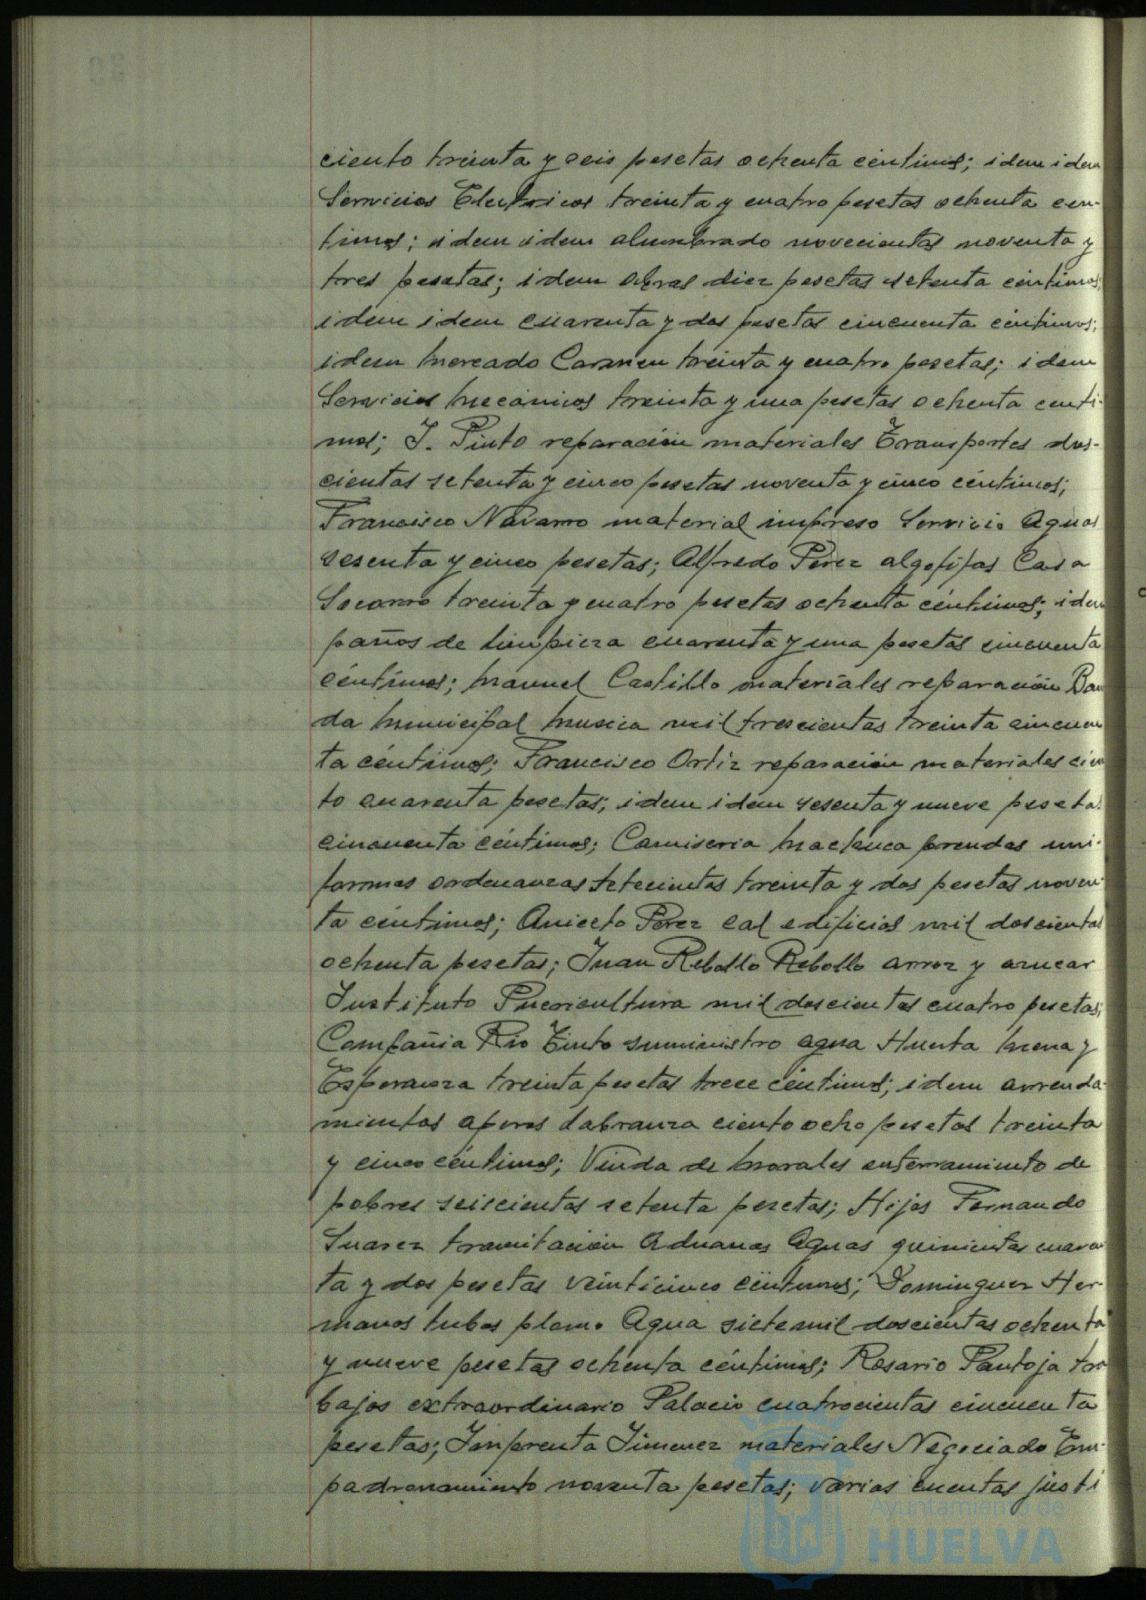 ciento treinta y seis pesetas ochenta céntimos; idem idem
Servicios Electricos treinta y cuatro pesetas ochenta cén-
timos; idem idem alumbrado novecientas noventa y
tres pesetas; idem obras diez pesetas setenta céntimos;
idem idem cuarenta y dos pesetas cincuenta céntimos;
idem Mercado Carmen treinta y cuatro pesetas; idem
Servicios Mecánicos treinta y una pesetas ochenta cénti-
mos; J. Pinto reparación materiales Transportes dos-
cientas setenta y cinco pesetas noventa y cinco céntimos;
Francisco Navarro material impreso Servicio Aguas
sesenta y cinco pesetas; Alfredo Pérez algofifas Casa
Socorro treinta y cuatro pesetas ochenta céntimos; idem
paños de limpieza cuarenta y una pesetas cincuenta
céntimos; Manuel Castillo materiales reparación Ban
da Municipal Musica mil trescientas treinta cincuen
ta céntimos; Francisco Ortiz reparación materiales cien
to cuarenta pesetas; idem idem sesenta y nueve pesetas
cincuenta céntimos; Camiseria Machuca prendas uni-
formes ordenanzas setecientas treinta y dos pesetas noven-
ta céntimos; Aniceto Pérez cal edificios mil doscientas
ochenta pesetas; Juan Rebollo Rebollo arroz y azucar
Instituto Puericultura mil doscientas cuatro pesetas;
Compañia Rio Tinto suministro agua Huerta Mena y
Esperanza treinta pesetas trece céntimos; idem arrenda-
mientos aperos labranza ciento ocho pesetas treinta
y cinco céntimos; Viuda de Morales enterramiento de
pobres seiscientas setenta pesetas; Hijos Fernando
Suarez tramitación Aduanas Aguas quinientas cuaren
ta y dos pesetas veinticinco céntimos; Dominguez Her-
manos tubos plomo Agua siete mil doscientas ochenta
y nueve pesetas ochenta céntimos; Rosario Pantoja tra
bajos extraordinario Palacio cuatrocientas cincuenta
pesetas; Imprenta Jimenez materiales Negociado Em-
padronamiento noventa pesetas; varias cuentas justi
Ayuntamiento de
HUELVA